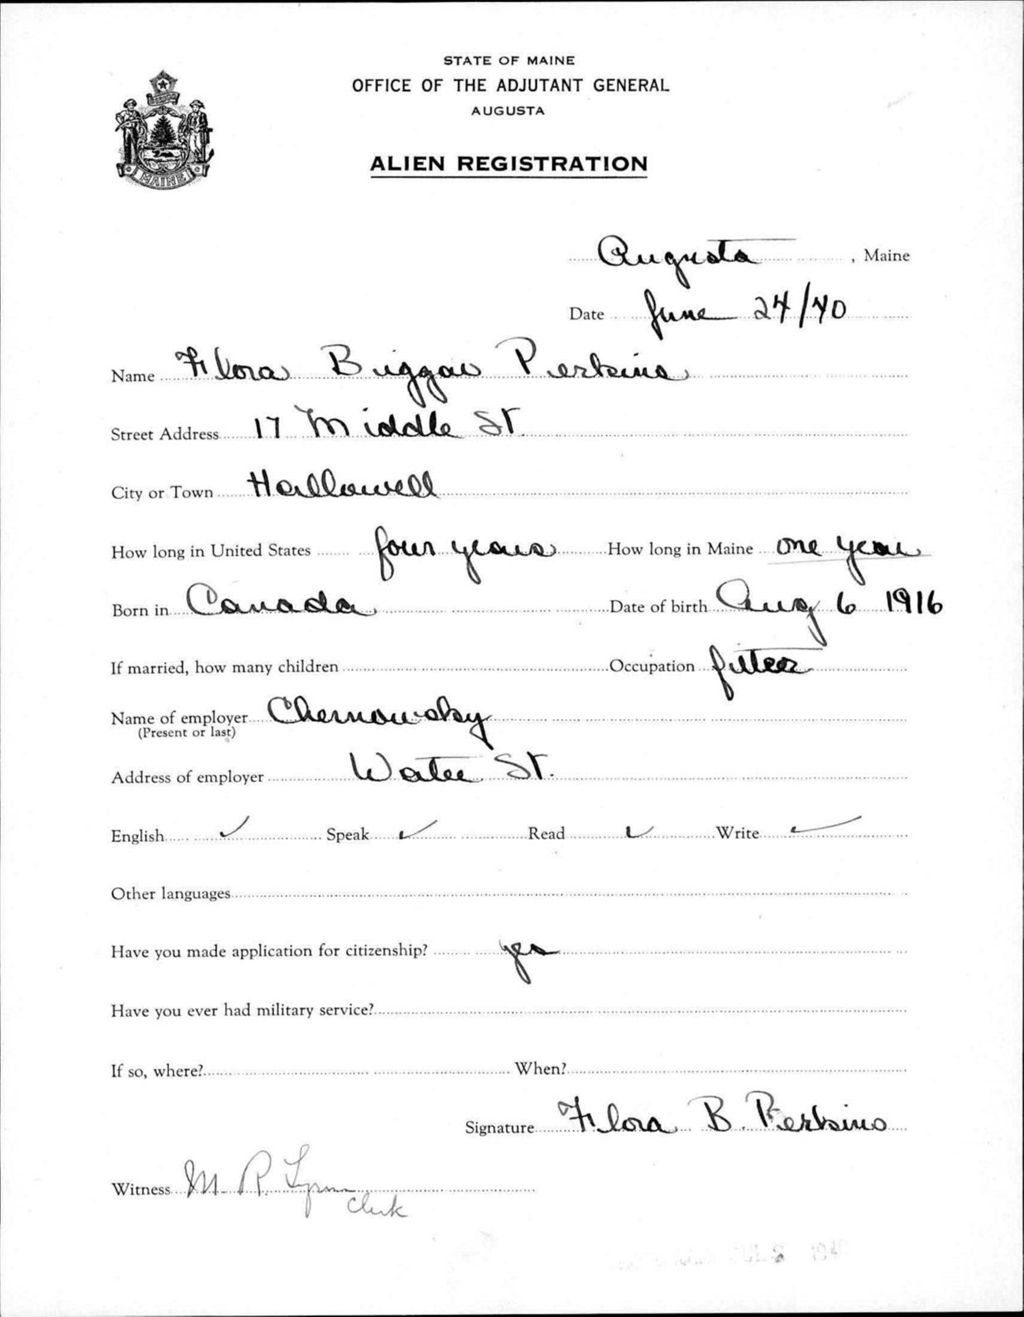 STATE OF MAINE
OFFICE OF THE ADJUTANT GENERAL
AUGUSTA
ALIEN REGISTRATION
MAINE
Augusta, Maine
Date June 24/40
Name Flora Biggar Perkins
Street Address 17 Middle St.
City or Town Hallowell
How long in United States four years How long in Maine one year
Born in Canada Date of birth Aug 6 1916
If married, how many children Occupation fitter
Name of employer Chernowsky
(Present or last)
Address of employer Water St.
English ✓ Speak ✓ Read ✓ Write ✓
Other languages
Have you made application for citizenship? yes
Have you ever had military service?
If so, where? When?
Signature Flora B. Perkins
Witness M. R. Lynn
Clerk